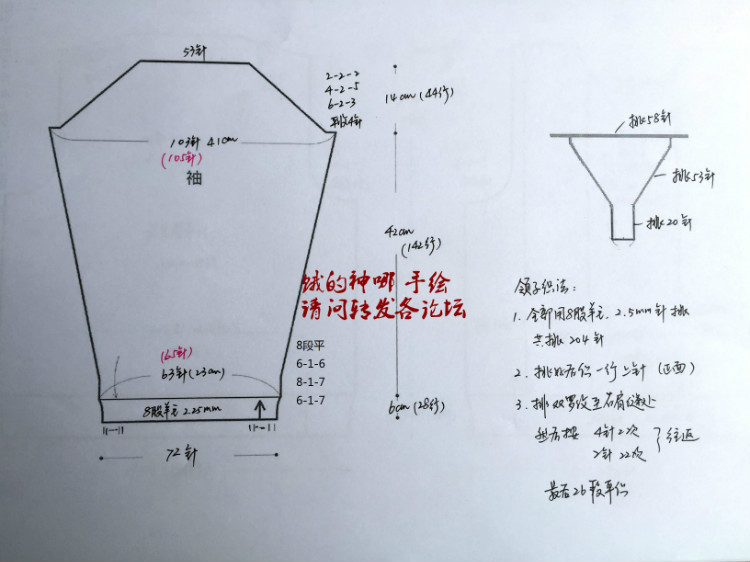 53针
2-2-2
4-2-5
6-2-3
平收4针
14cm (44行)
103针 41cm
(105针)
袖
42cm
(142行)
饿的神哪 手绘
请问转发各论坛
8段平
6-1-6
8-1-7
6-1-7
(65针)
63针(23cm)
8股羊毛 2.25mm
6cm (28行)
72针
挑58针
挑53针
挑20针
领子织法:
1. 全部用8股羊毛. 2.5mm针挑
共挑204针
2. 挑好后织一行上针 (正面)
3. 排双罗纹至右肩
4针2次
2针22次
往返
最后26段平织